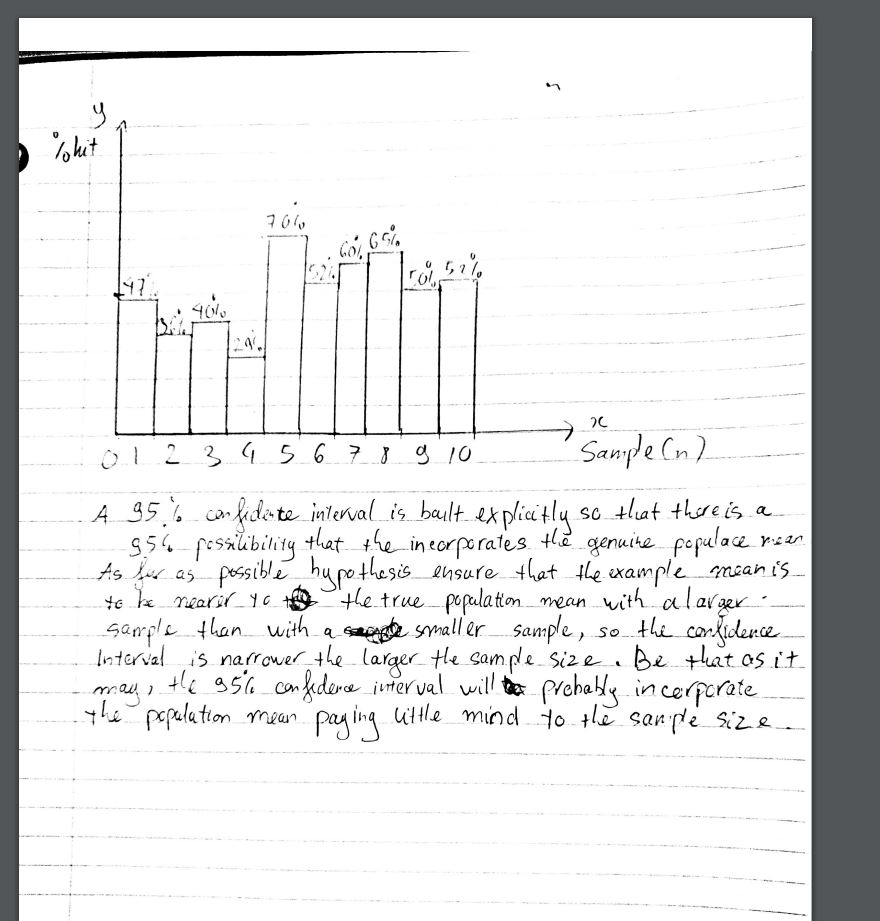 y
% hit
47%
36%
40%
29%
70%
52%
60%
65%
50%
52%
0 1 2 3 4 5 6 7 8 9 10
x
Sample (n)
A 95% confidence interval is built explicitly so that there is a
95% possilibility that the incorporates the genuine populace mean
As far as possible hypothesis ensure that the example mean is
to be nearer to the true population mean with a larger
sample than with a smaller sample, so the confidence
Interval is narrower the larger the sample size. Be that as it
may, the 95% confidence interval will probably incorporate
the population mean paying little mind to the sample size.